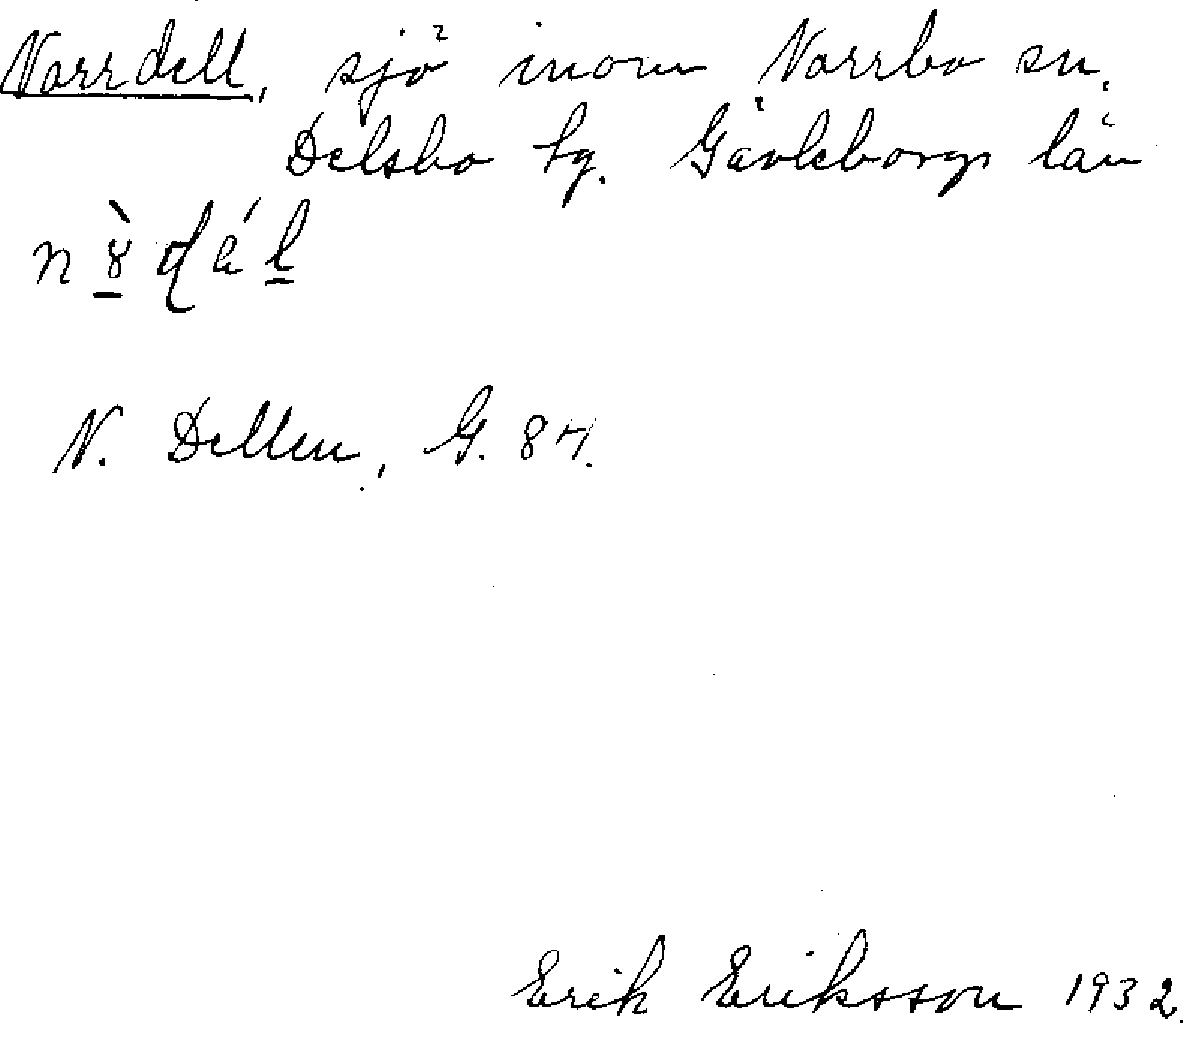 Norrdell, sjö inom Norrbo sn.
Delsbo tg. Gävleborgs län
N. Dellen, G. 84.
Erik Eriksson 1932.